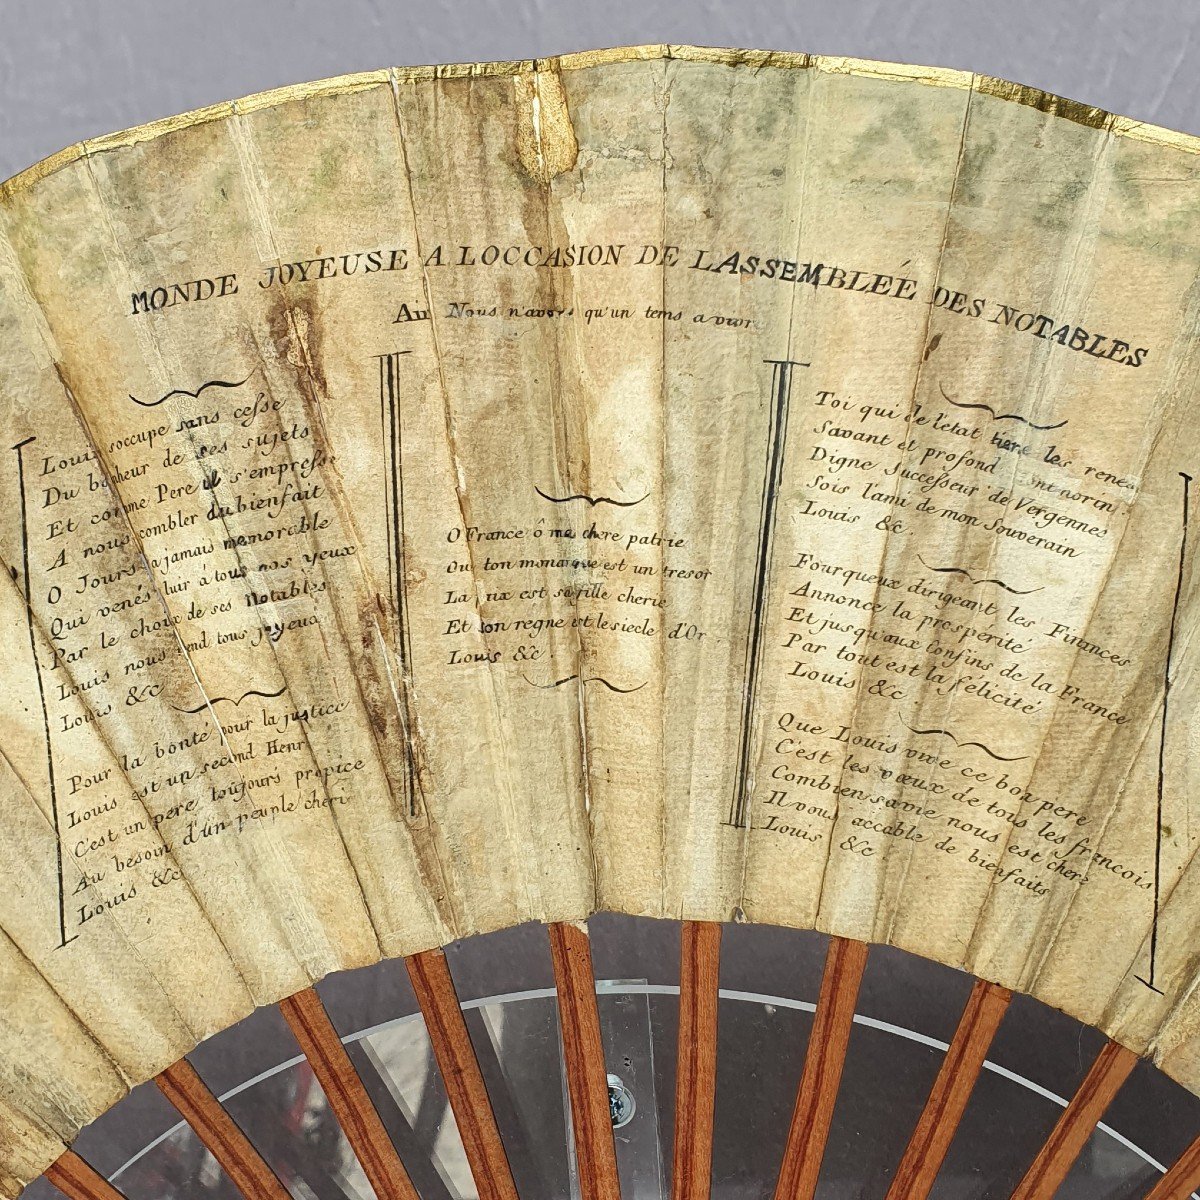 MONDE JOYEUSE A LOCCASION DE LASSEMBLÉE DES NOTABLES
Air Nous n'avons qu'un tems a vivre
Louis soccupe sans cesse
Du bonheur de ses sujets
Et comme Pere il s'empresse
A nous combler du bienfait
O Jours ajamais memorable
Qui venés luir à tous nos yeux
Par le choix de ses Notables
Louis nous rend tous joyeux
Louis &c
Pour la bonté pour la justice
Louis est un second Henri
C'est un pere toujours propice
Au besoin d'un peuple cheri
Louis &c
O France ô ma chere patrie
Ou ton monarque est un tresor
La paix est sa fille cherie
Et son regne est le siecle d'Or
Louis &c.
Toi qui de l'état tiens les renes
Savant et profond
Digne Successeur de Vergennes
Sois l'ami de mon Souverain
Louis &c.
Fourqueux dirigeant les Finances
Annonce la prospérité
Et jusqu'aux confins de la France
Par tout est la félicité
Louis &c
Que Louis vive ce bon pere
C'est les vœux de tous les francois
Combien sa vie nous est chere
Il vous accable de bienfaits
Louis &c.